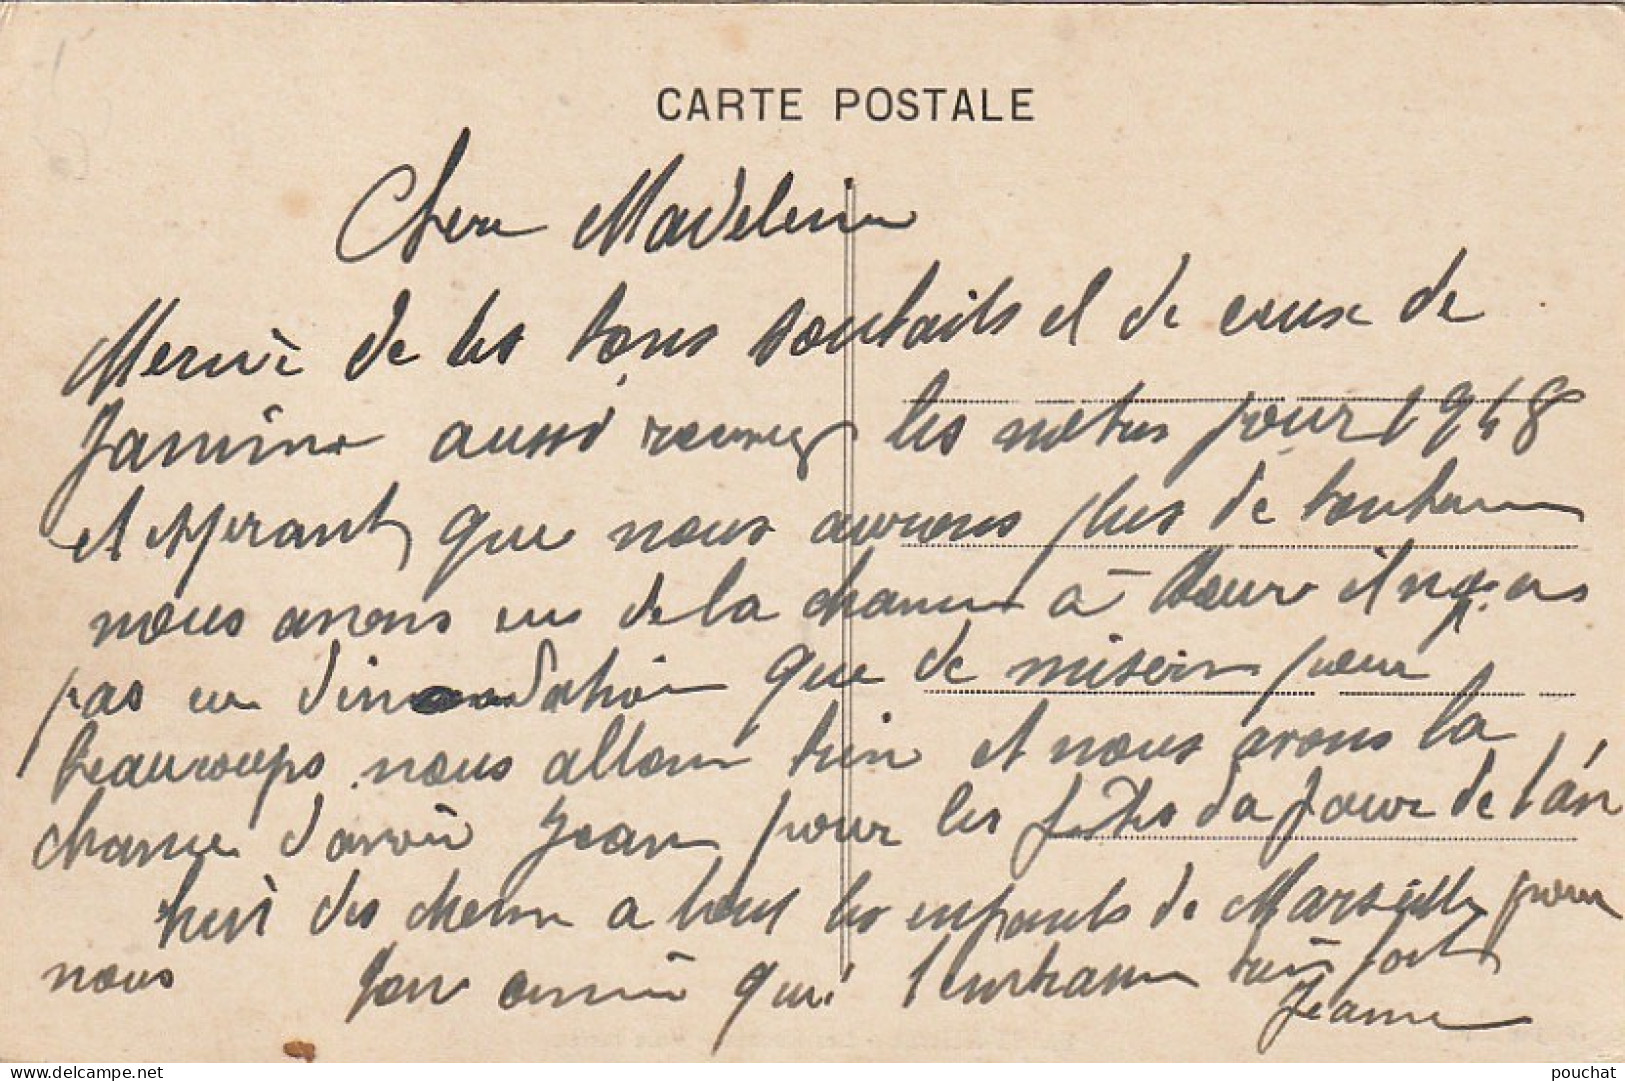 CARTE POSTALE
Chere Madeleine
Merci de tes bons souhaits et de ceux de
Janine aussi recevez les notres pour 1948
et esperant que nous aurons plus de bonheur
nous avons eu de la chance à il n'y as
pas eu d'inondation que de misere pour
beaucoups nous allons bien et nous avons la
chance d'avoir Jean pour les fêtes du Jour de l'án
des a tout les enfants de Marseille pour
nous Ton amie qui t'embrasse bien fort
Jeanne
pouchat